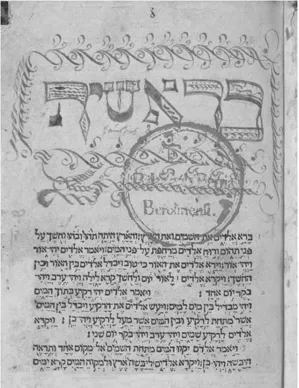 בראשית
Berolinensi.
ברא אלדים את השמים ואת הארץ והארץ היתה תהו ובהו וחשך על
פני תהום ורוח אלדים מרחפת על פני המים ויאמר אלדים יהי אור
ויהי אור וירא אלדים את האור כי טוב ויבדל אלדים בין האור ובין
החשך ויקרא אלדים לאור יום ולחשך קרא לילה ויהי ערב ויהי
בקר יום אחד : ויאמר אלדים יהי רקיע בתוך המים
ויהי מבדיל בין מים למים ויעש אלדים את הרקיע ויבדל בין המים
אשר מתחת לרקיע ובין המים אשר מעל לרקיע ויהי כן : ויקרא
אלדים לרקיע שמים ויהי ערב ויהי בקר יום שני :
ויאמר אלדים יקוו המים מתחת השמים אל מקום אחד ותראה
היבשה ויהי כן ויקרא אלדים ליבשה ארץ ולמקוה המים קרא ימים